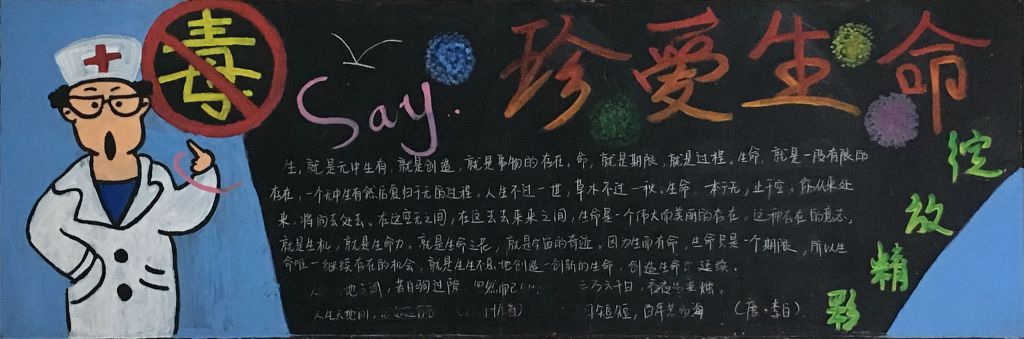 毒
Say..
珍爱生命
绽放精彩
生,就是无中生有,就是创造,就是事物的存在。命,就是期限,就是过程。生命,就是一段有限的
存在,一个无中生有然后复归于无的过程。人生不过一世,草木不过一秋。生命,本于无,止于空。你从来处
来,将向去处去。在这空无之间,在这去去来来之间,生命是一个伟大而美丽的存在。这种存在的意志,
就是生机,就是生命力。就是生命之花,就是宇宙的奇迹。因为生而有命,生命只是一个期限,所以生
命唯一继续存在的机会,就是生生不息地创造一创新的生命,创造生命 延续。
地之间,若白驹过隙 忽然而已 三万六千日,夜夜 秉烛。
人生天地间, 短短,百年 (唐·李白)